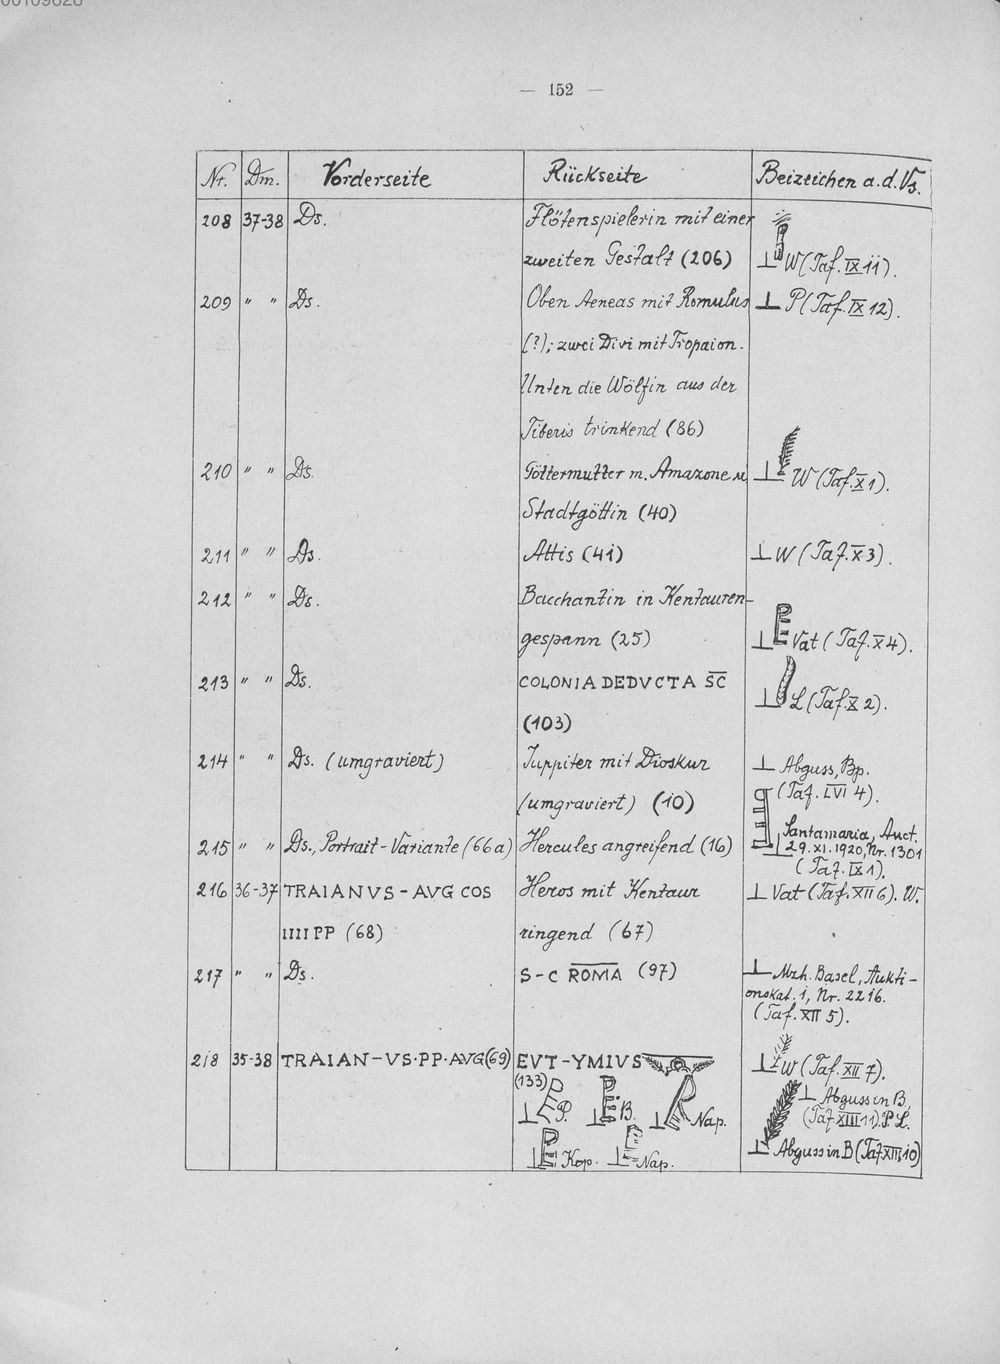 00109828
— 152 —
Nr. Dm. Vorderseite Rückseite Beizeichen a.d.Vs.
208 37-38 Ds. Flötenspielerin mit einer
zweiten Gestalt (206) ⊥ W (Taf. IX 11).
209 " " Ds. Oben Aeneas mit Romulus ⊥ P (Taf. IX 12).
(?); zwei Divi mit Tropaion.
Unten die Wölfin aus der
Tiberis trinkend (86)
210 " " Ds. Göttermutter m. Amazone u. ⊥ W (Taf. X 1).
Stadtgöttin (40)
211 " " Ds. Attis (41) ⊥ W (Taf. X 3).
212 " " Ds. Bacchantin in Kentauren-
gespann (25) ⊥ PE Vat (Taf. X 4).
213 " " Ds. COLONIA DEDVCTA SC
(103) ⊥ L (Taf. X 2).
214 " " Ds. (umgraviert) Iuppiter mit Dioskur ⊥ Abguss, Bp.
(umgraviert) (10) (Taf. LVI 4).
215 " " Ds., Portrait-Variante (66a) Hercules angreifend (16) ⊥ Santamaria, Auct.
29. XI. 1920, Nr. 1301
(Taf. IX 1).
216 36-37 TRAIANVS - AVG COS Heros mit Kentaur ⊥ Vat (Taf. XII 6). W.
IIII PP (68) ringend (67)
217 " " Ds. S-C ROMA (97) ⊥ Mzh. Basel, Aukti-
onskat. 1, Nr. 2216.
(Taf. XII 5).
218 35-38 TRAIAN-VS·PP·AVG (69) EVT-YMIVS ⊥ W (Taf. XII 7).
(133) ⊥ PE P. ⊥ PE B. ⊥ PE Nap. ⊥ Abguss in B
(Taf. XIII 11). P L.
⊥ PE Kop. ⊥ PE Nap. ⊥ Abguss in B (Taf. XIII, 10)